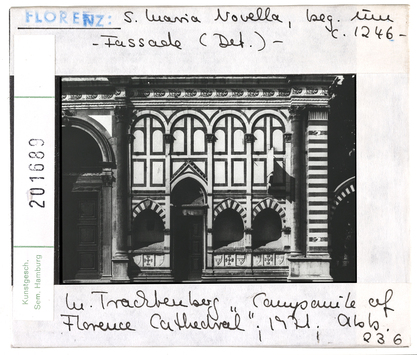 FLORENZ: S. Maria Novella, beg. um
- Fassade (Det.) - c. 1246 -
201689
Kunstgesch.
Sem. Hamburg
M. Trachtenberg „Campanile of
Florence Cathedral", 1971, Abb.
236